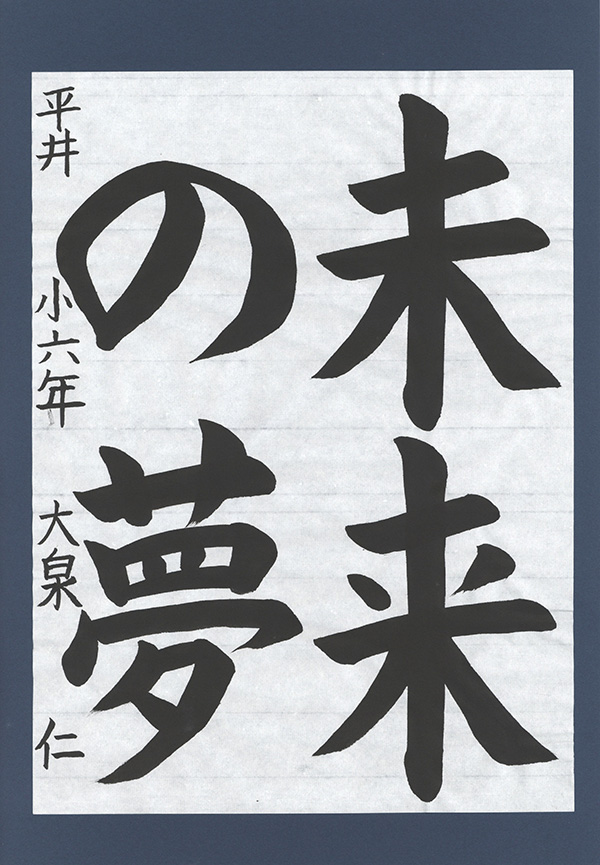 未来
の夢
平井 小六年 大泉 仁